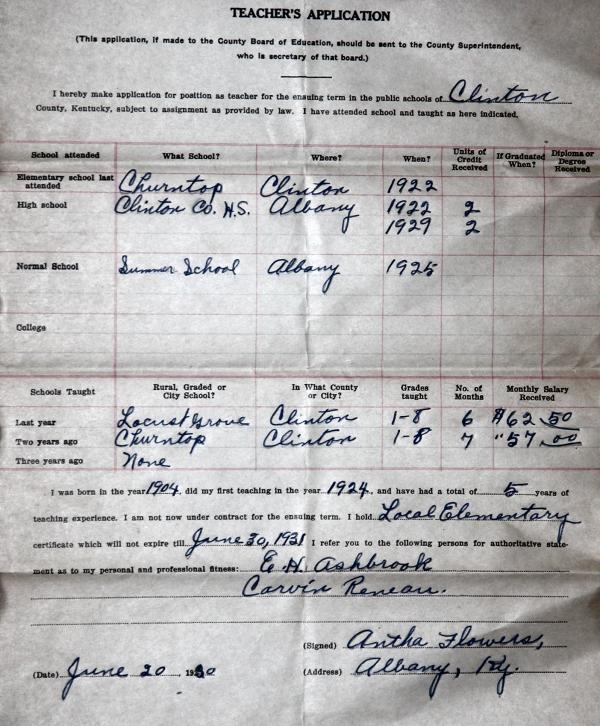 TEACHER'S APPLICATION
(This application, if made to the County Board of Education, should be sent to the County Superintendent,
who is secretary of that board.)
I hereby make application for position as teacher for the ensuing term in the public schools of Clinton
County, Kentucky, subject to assignment as provided by law. I have attended school and taught as here indicated.
School attended What School? Where? When? Units of Credit Received If Graduated When? Diploma or Degree Received
Elementary school last attended Churntop Clinton 1922
High school Clinton Co. H.S. Albany 1922 2
1929 2
Normal School Summer School Albany 1925
College
Schools Taught Rural, Graded or City School? In What County or City? Grades taught No. of Months Monthly Salary Received
Last year Locust Grove Clinton 1-8 6 $62.50
Two years ago Churntop Clinton 1-8 7 "57.00
Three years ago None
I was born in the year 1904, did my first teaching in the year 1924, and have had a total of 5 years of
teaching experience. I am not now under contract for the ensuing term. I hold Local Elementary
certificate which will not expire till June 30, 1931 I refer you to the following persons for authoritative state-
ment as to my personal and professional fitness: E. H. Ashbrook
Corvin Reneau.
(Signed) Antha Flowers,
(Date) June 20 1930 (Address) Albany, Ky.